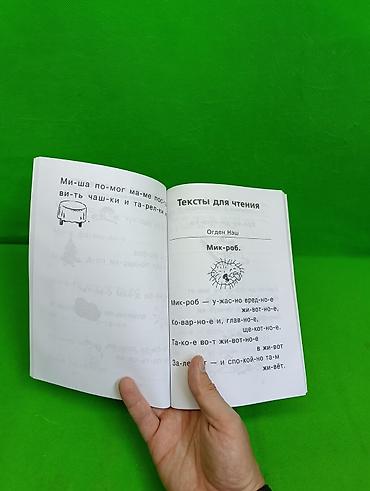 Ми-ша по-мог ма-ме пос-
ви-ть чаш-ки и та-рел-
Тексты для чтения
Огден Нэш
Мик-роб.
Мик-роб — у-жас-но вред-но-е
жи-вот-но-е,
Ко-вар-но-е и, глав-но-е,
ще-кот-но-е.
Та-ко-е во-т жи-вот-но-е
в жи-вот
За-ле-т — и спо-кой-но та-м
жи-вёт.